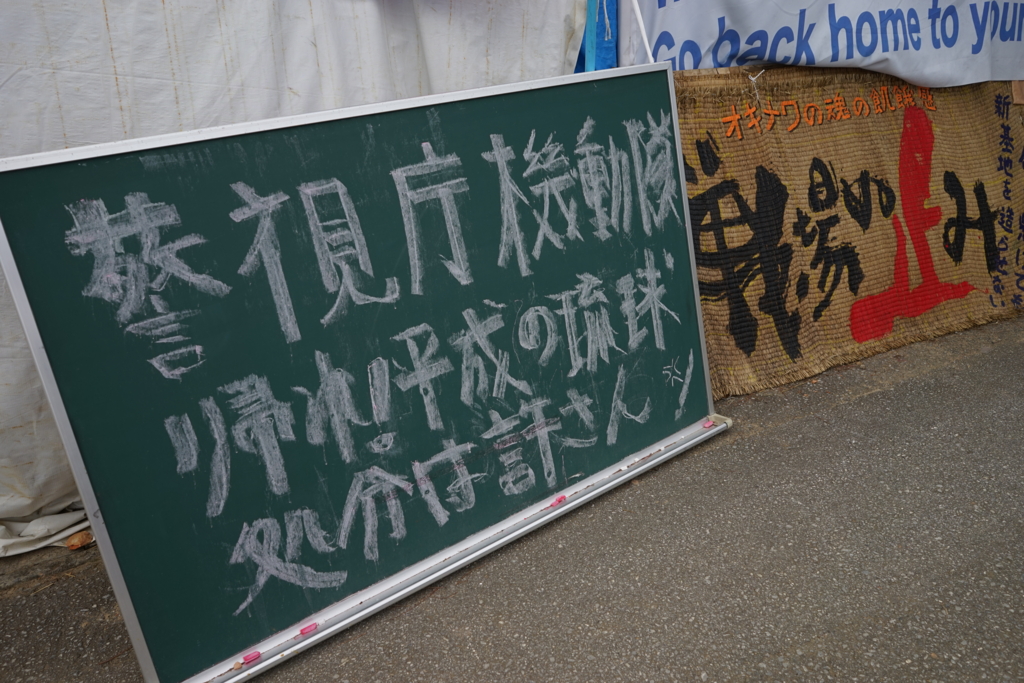 警視庁機動隊
帰れ!平成の琉球
処分は許さん!
Go back home to your
オキナワの魂の飢餓感
止み
新基地を造らない